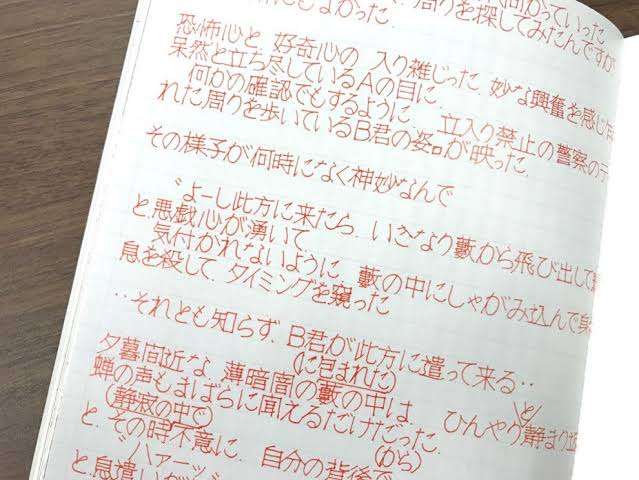 周りを探してみたんですが
にもなかった.
恐怖心と 好奇心の 入り雑じった 妙な興奮を感じ
呆然と立ち尽しているAの目に.
何かの確認でもするように 立入り禁止の警察のテ
れた周りを歩いているB君の姿が映った.
その様子が何時になく神妙なんで
〝よーし此方に来たら、いきなり藪から飛び出して
と悪戯心が湧いて
気付かれないように 藪の中にしゃがみ込んで身
息を殺して、タイミングを窺った
‥それとも知らず、B君が此方に遣って来る‥
(に包まれた)
夕暮間近な 薄暗闇の藪の中は ひんやり静まり
と
蝉の声もまばらに聞えるだけだった.
(静寂の中で)
(から)
と、その時不意に、自分の背後で
〝ハァーッ
と息遣いが